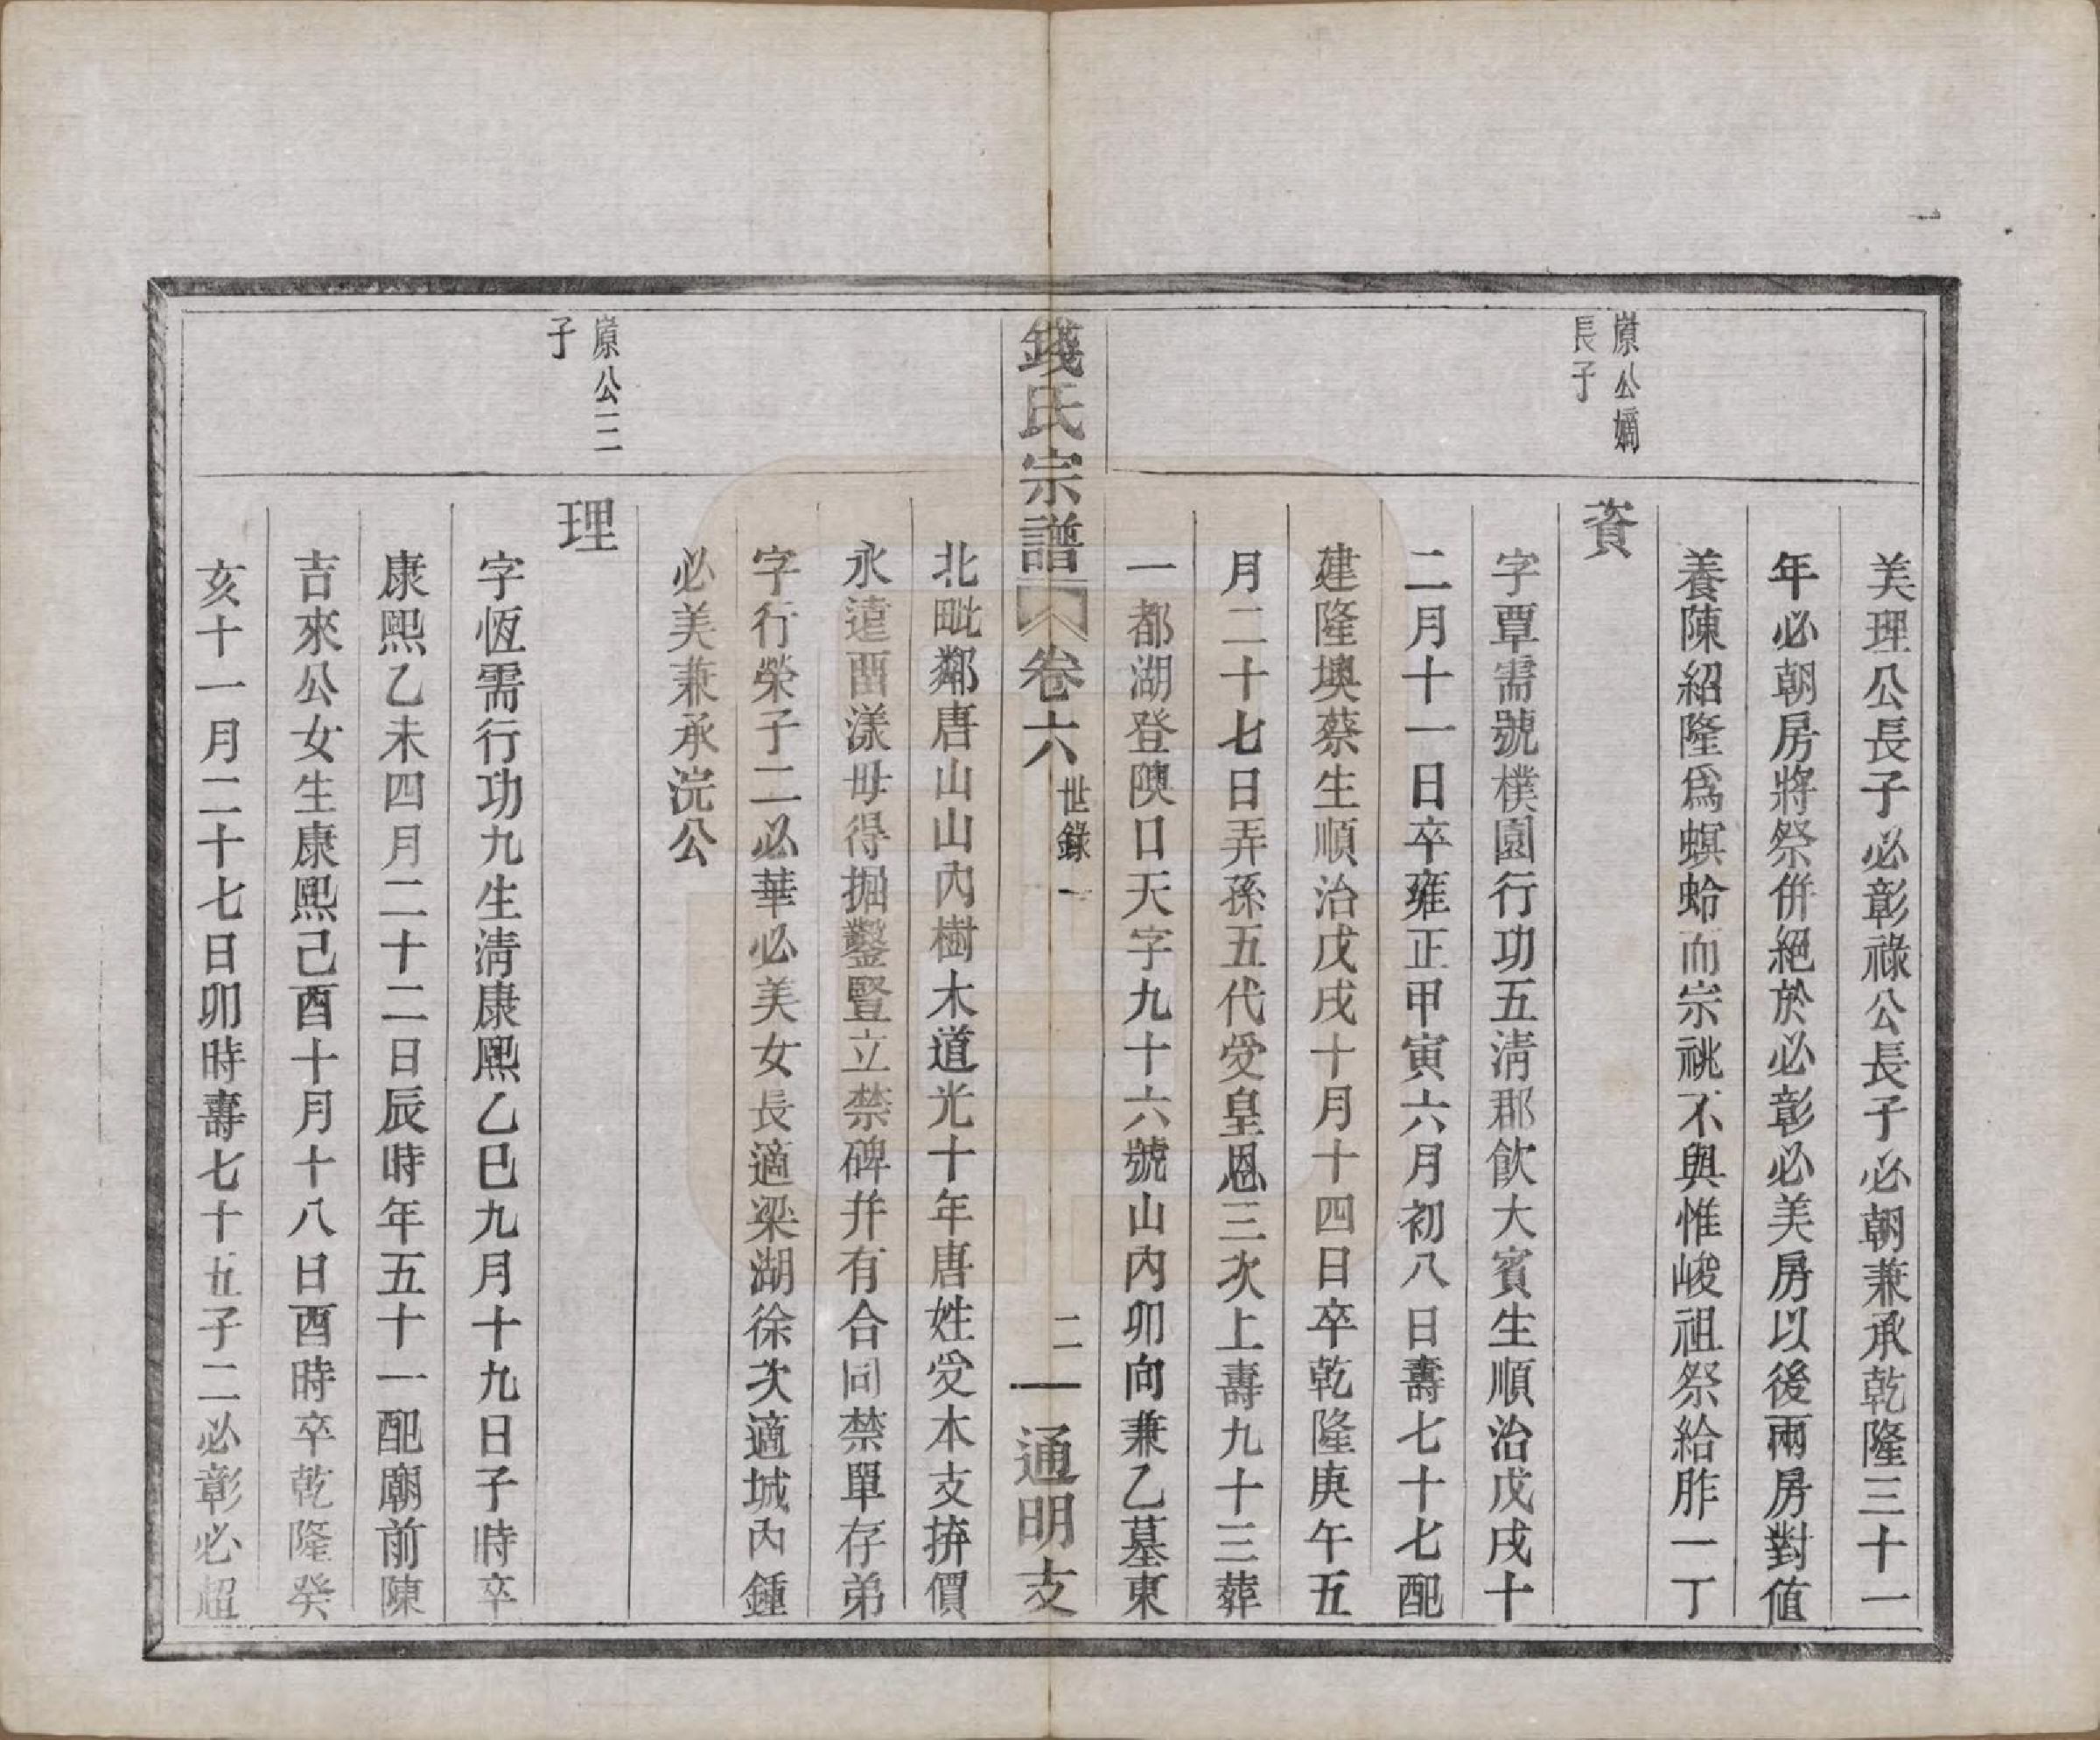 美理公長子必彰祿公長子必朝兼承乾隆三十一
年必朝房將祭併絕於必彰必美房以後兩房對值
養陳紹隆爲螟蛉而宗祧不與惟峻祖祭給胙一丁
原公嫡
長子
資
字覃需號樸園行功五淸郡飲大賓生順治戊戌十
二月十一日卒雍正甲寅六月初八日壽七十七配
建隆墺蔡生順治戊戌十月十四日卒乾隆庚午五
月二十七日弄孫五代受皇恩三次上壽九十三葬
一都湖登隩口天字九十六號山內卯向兼乙墓東
錢氏宗譜
卷六
世錄一
二
通明支
北毗鄰唐山山內樹木道光十年唐姓受本支拚價
永遠畱漾毋得掘鑿豎立禁碑幷有合同禁單存弟
字行榮子二必華必美女長適梁湖徐次適城內鍾
必美兼承浣公
原公二
子
理
字恆需行功九生淸康熙乙巳九月十九日子時卒
康熙乙未四月二十二日辰時年五十一配廟前陳
吉來公女生康熙己酉十月十八日酉時卒乾隆癸
亥十一月二十七日卯時壽七十五子二必彰必超